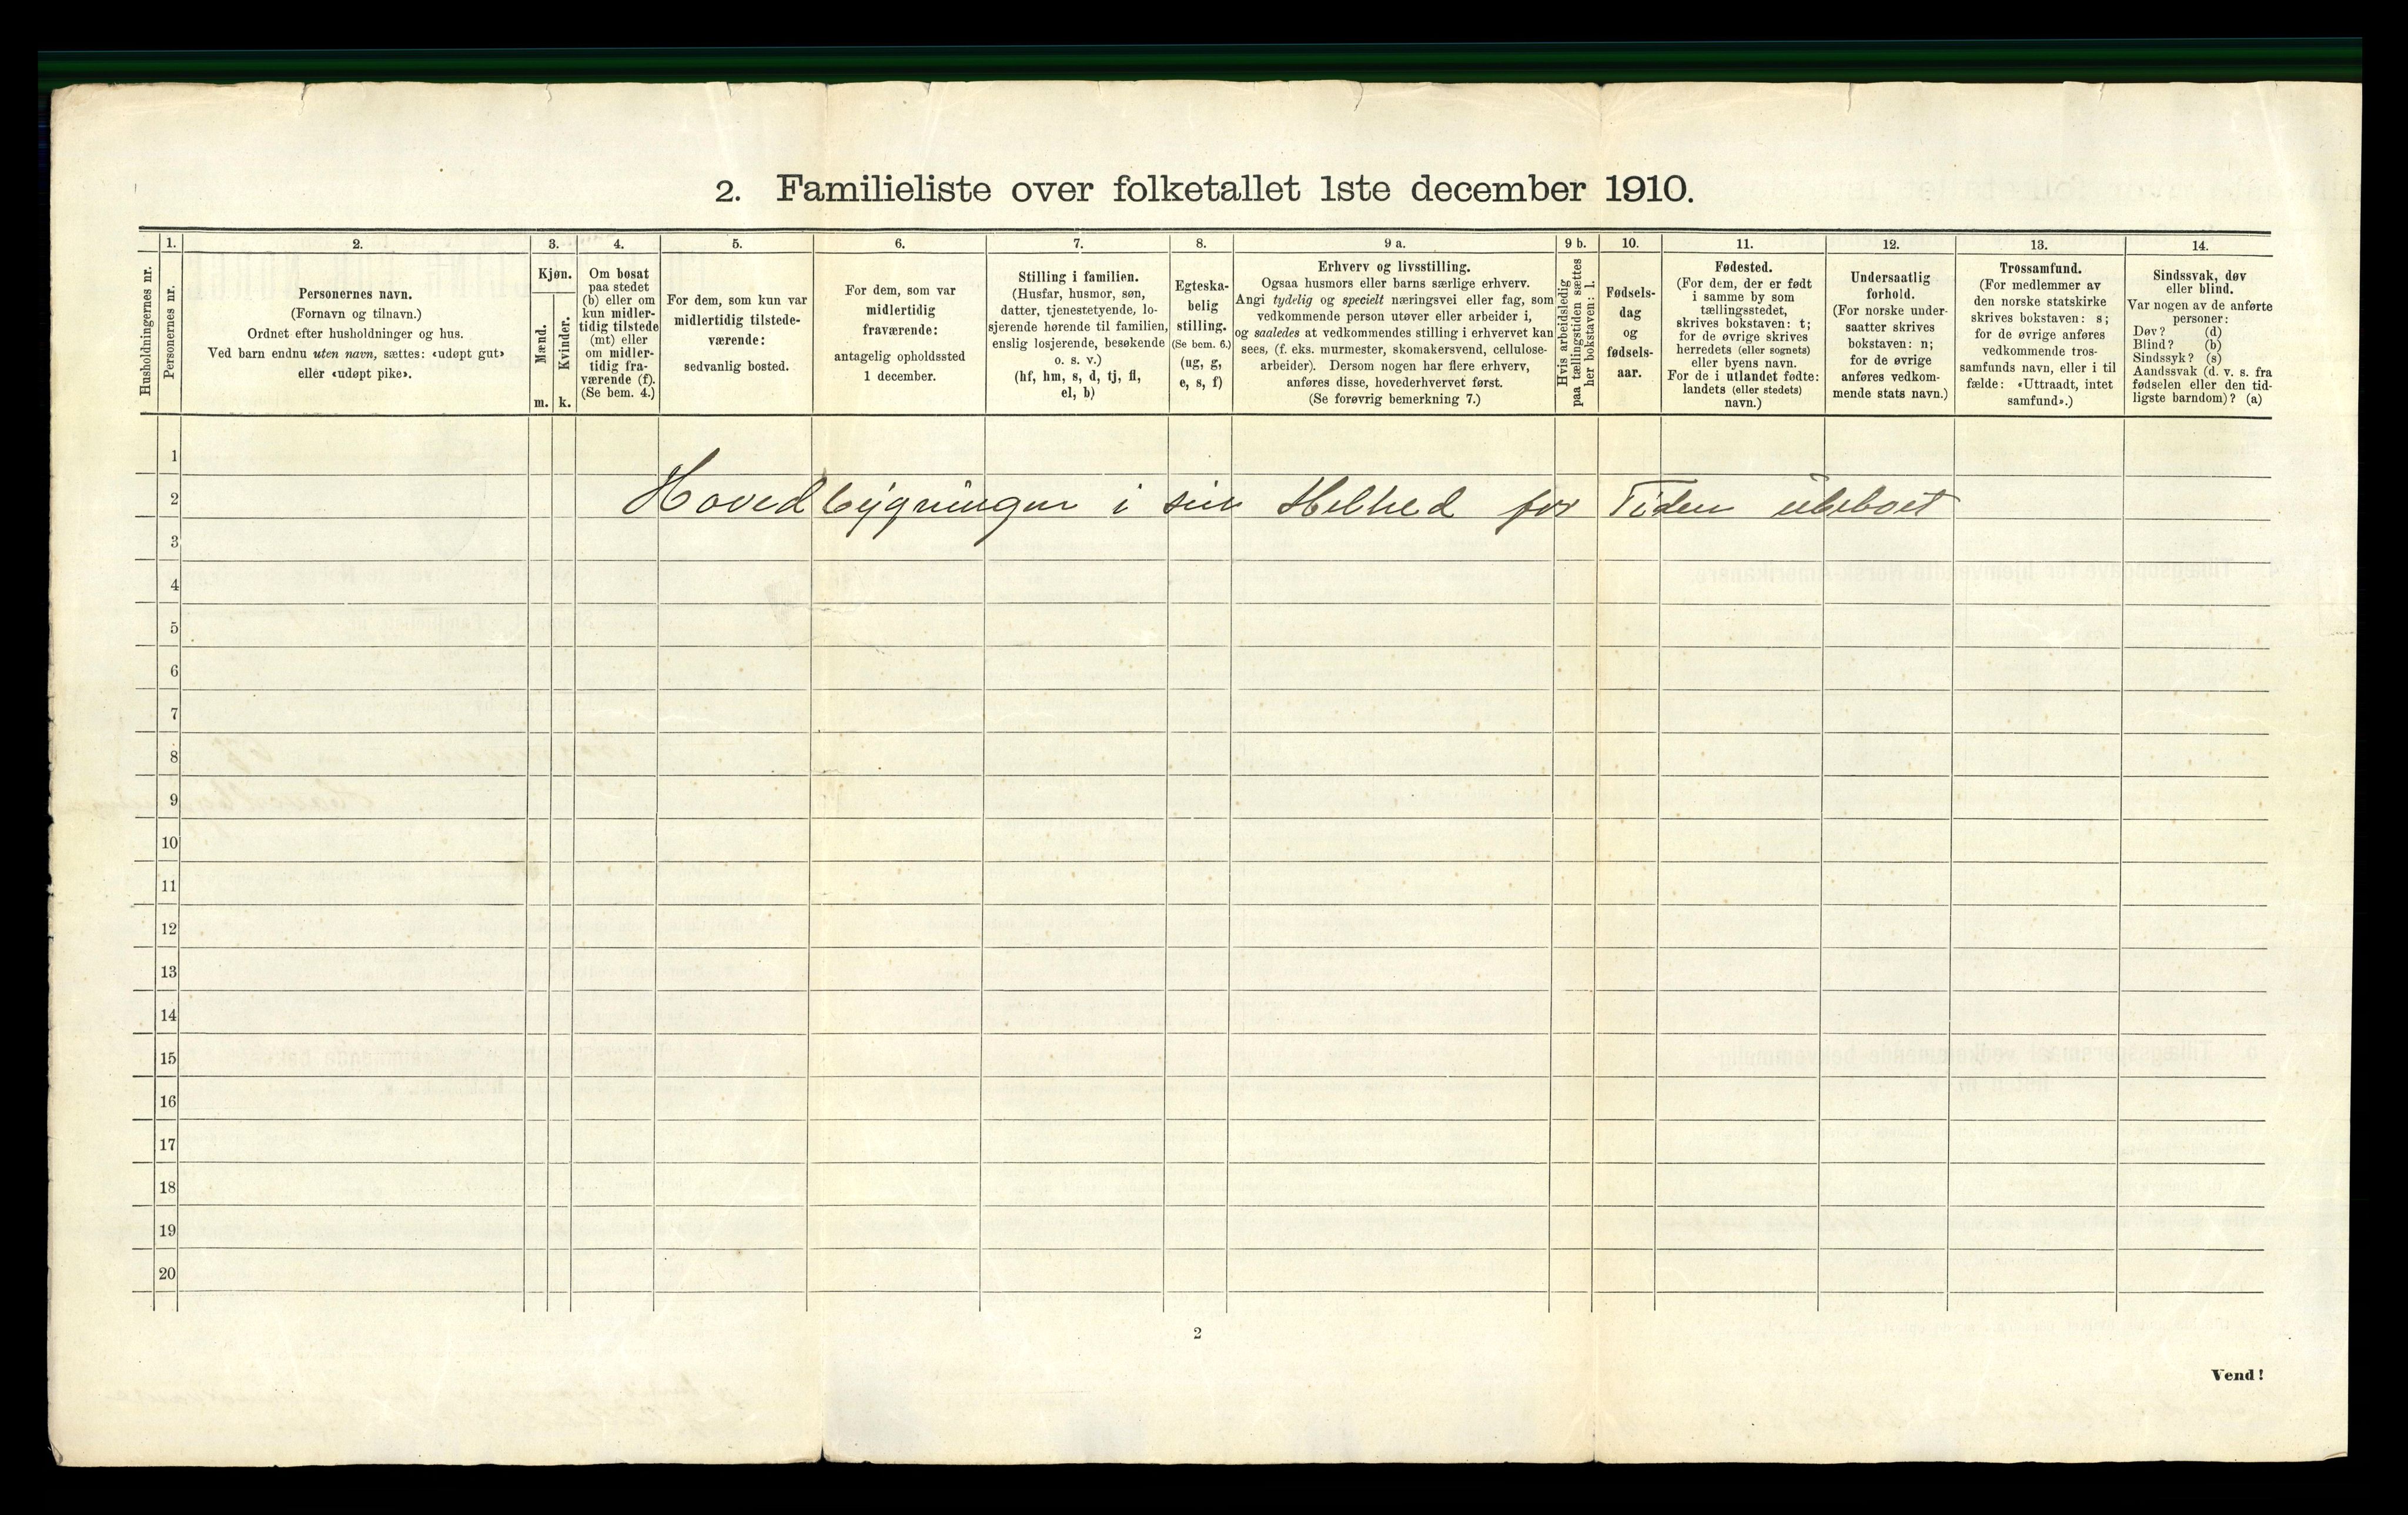 2. Familieliste over folketallet 1ste december 1910.
Husholdningernes nr.
1.
Personernes nr.
2.
Personernes navn.
(Fornavn og tilnavn.)
Ordnet efter husholdninger og hus.
Ved barn endnu uten navn, sættes: «udøpt gut»
eller «udøpt pike».
3.
Kjøn.
Mænd.
m.
Kvinder.
k.
4.
Om bosat
paa stedet
(b) eller om
kun midler-
tidig tilstede
(mt) eller
om midler-
tidig fra-
værende (f).
(Se bem. 4.)
5.
For dem, som kun var
midlertidig tilstede-
værende:
sedvanlig bosted.
6.
For dem, som var
midlertidig
fraværende:
antagelig opholdssted
1 december.
7.
Stilling i familien.
(Husfar, husmor, søn,
datter, tjenestetyende, lo-
sjerende hørende til familien,
enslig losjerende, besøkende
o. s. v.)
(hf, hm, s, d, tj, fl,
el, b)
8.
Egteska-
belig
stilling.
(Se bem. 6.)
(ug, g,
e, s, f)
9 a.
Erhverv og livsstilling.
Ogsaa husmors eller barns særlige erhverv.
Angi tydelig og specielt næringsvei eller fag, som
vedkommende person utøver eller arbeider i,
og saaledes at vedkommendes stilling i erhvervet kan
sees, (f. eks. murmester, skomakersvend, cellulose-
arbeider). Dersom nogen har flere erhverv,
anføres disse, hovederhvervet først.
(Se forøvrig bemerkning 7.)
9 b.
Hvis arbeidsledig
paa tællingstiden sættes
her bokstaven: l.
10.
Fødsels-
dag
og
fødsels-
aar.
11.
Fødested.
(For dem, der er født
i samme by som
tællingsstedet,
skrives bokstaven: t;
for de øvrige skrives
herredets (eller sognets)
eller byens navn.
For de i utlandet fødte:
landets (eller stedets)
navn.)
12.
Undersaatlig
forhold.
(For norske under-
saatter skrives
bokstaven: n;
for de øvrige
anføres vedkom-
mende stats navn.)
13.
Trossamfund.
(For medlemmer av
den norske statskirke
skrives bokstaven: s;
for de øvrige anføres
vedkommende tros-
samfunds navn, eller i til
fælde: «Uttraadt, intet
samfund».)
14.
Sindssvak, døv
eller blind.
Var nogen av de anførte
personer:
Døv? (d)
Blind? (b)
Sindssyk? (s)
Aandssvak (d. v. s. fra
fødselen eller den tid-
ligste barndom)? (a)
1
2 Hovedbygningen i sin Helhed for Tiden ubeboet
3
4
5
6
7
8
9
10
11
12
13
14
15
16
17
18
19
20
2
Vend!